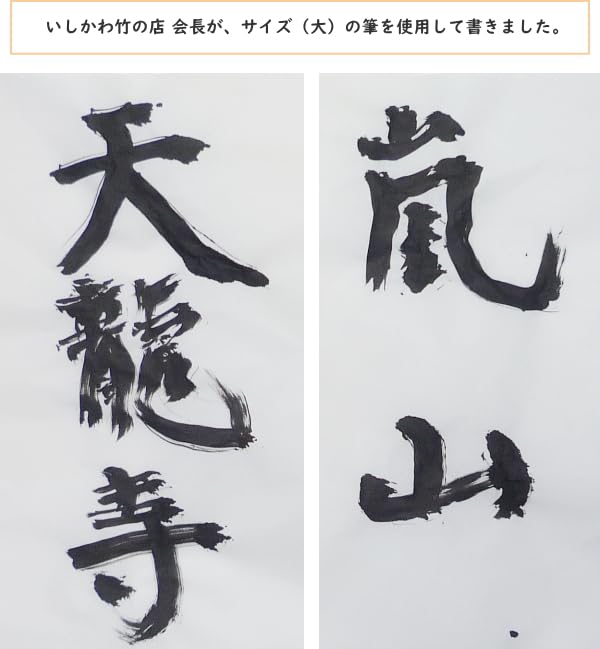 いしかわ竹の店 会長が、サイズ（大）の筆を使用して書きました。
嵐山
天龍寺